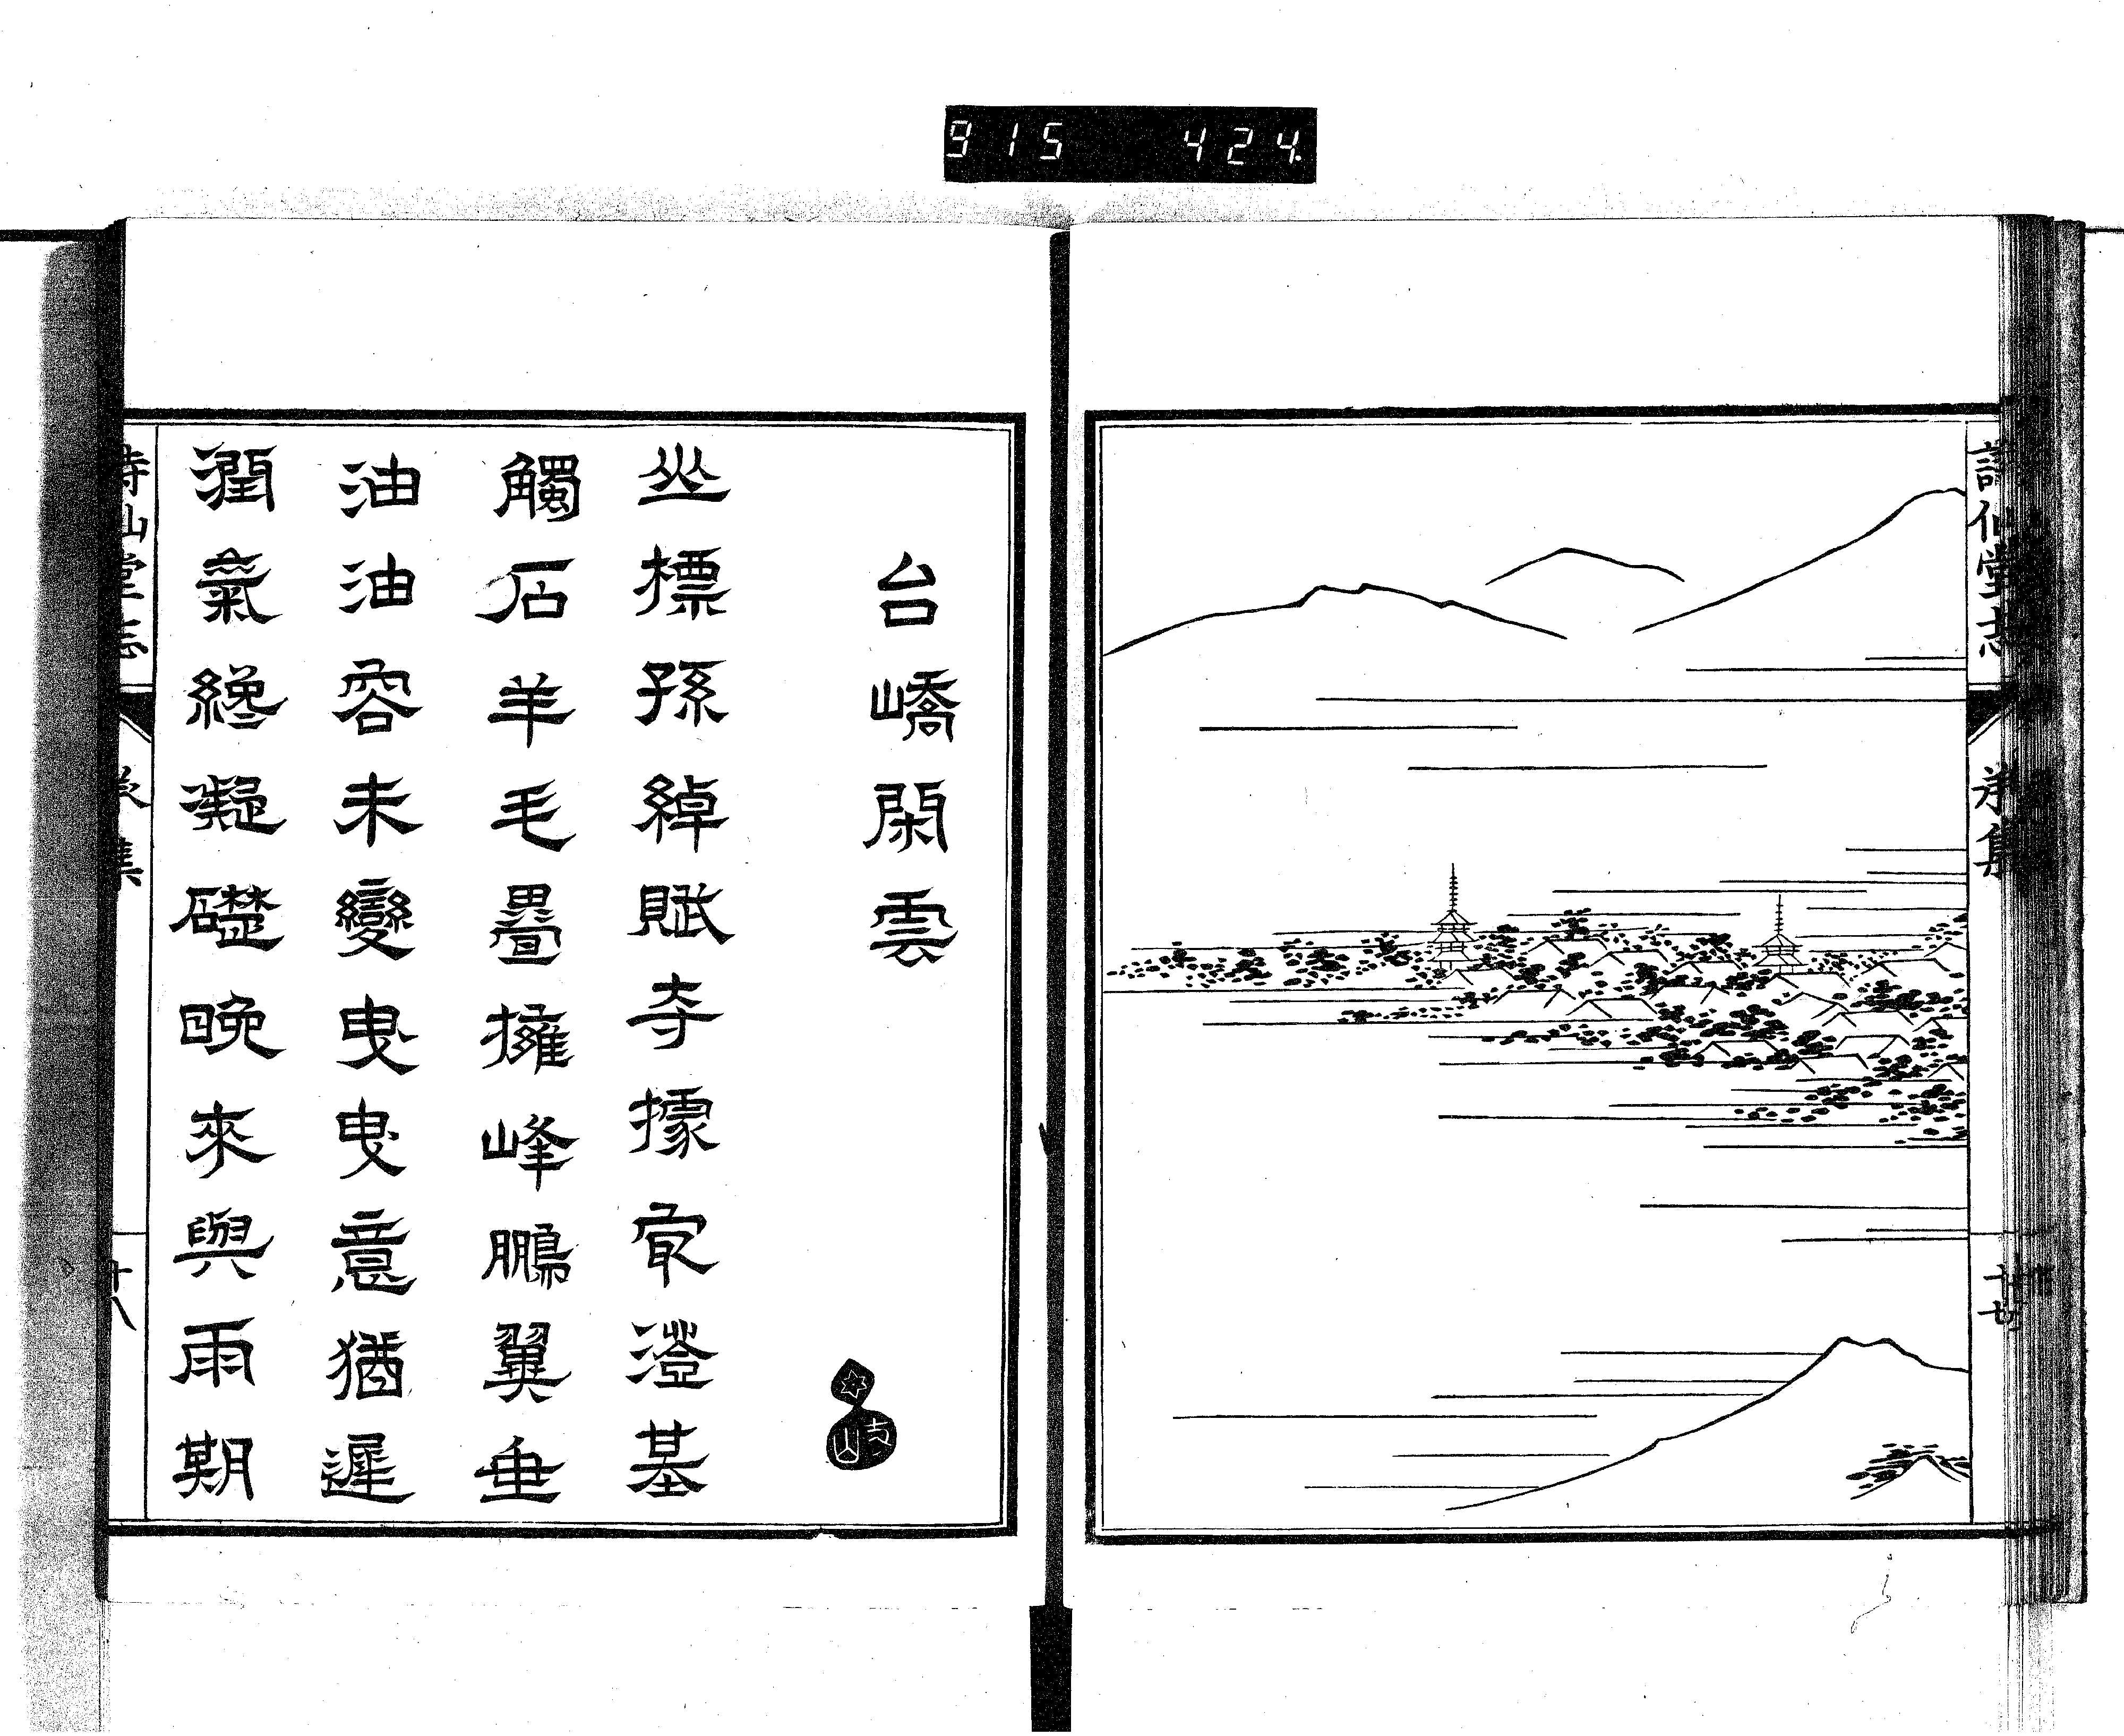 915 424
詩仙堂志 承集 十七
台嶠閑雲
丠標孫綽賦寺據㝡澄基
觸石羊毛疊擁峰鵬翼垂
油油容未變曳曳意猶遲
潤氣纔凝礎晚來與雨期
詩仙堂志 承集 十八